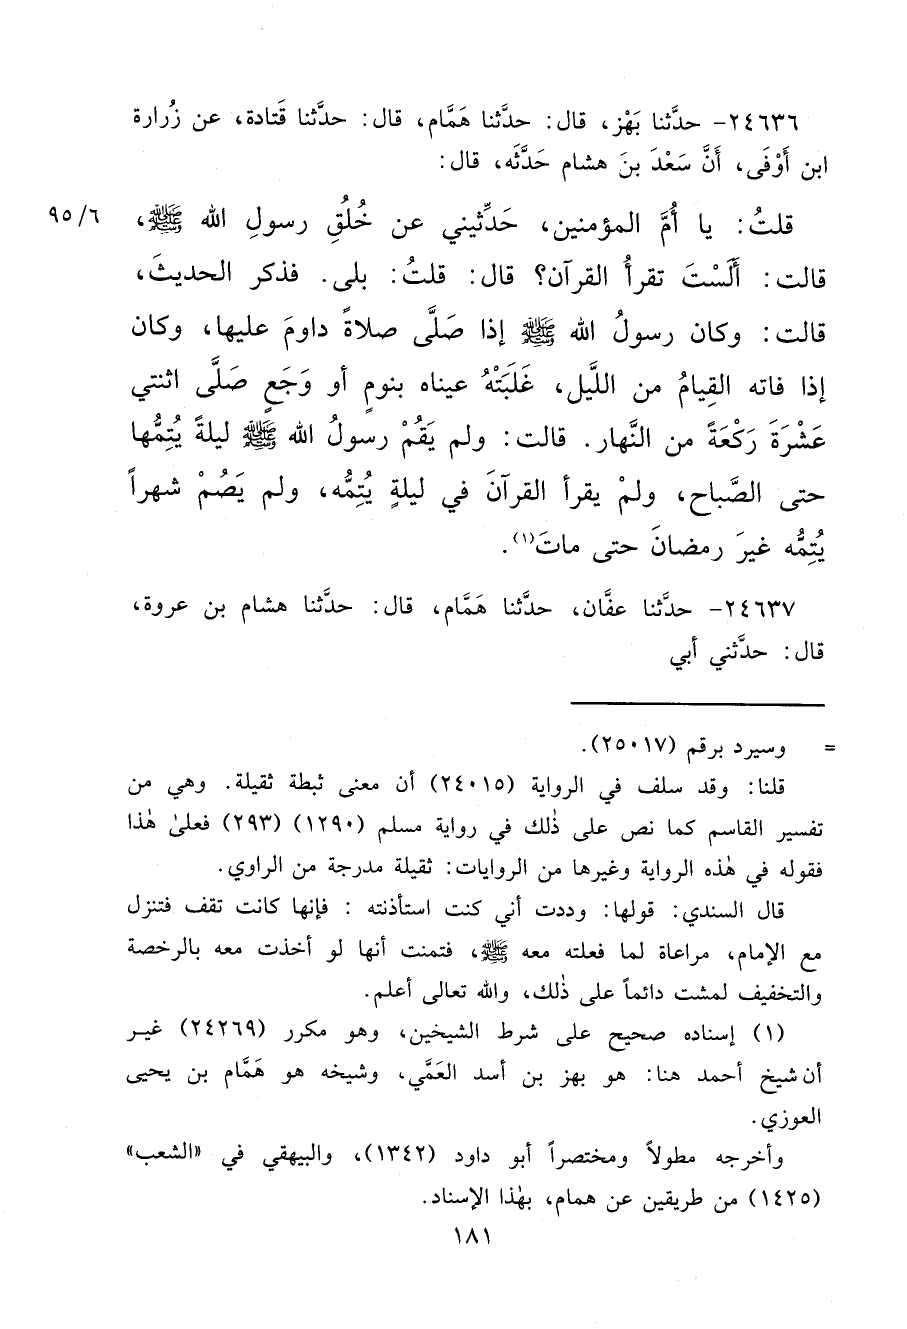 ٢٤٦٣٦- حدَّثنا بَهْز، قال: حدَّثنا هَمَّام، قال: حدَّثنا قَتادة، عن زُرارة
ابن أَوْفَى، أَنَّ سَعْدَ بنَ هشام حَدَّثَه، قال:
قلتُ: يا أُمَّ المؤمنين، حَدِّثيني عن خُلُقِ رسولِ الله ﷺ، ٩٥/٦
قالت: أَلَسْتَ تقرأُ القرآن؟ قال: قلتُ: بلى. فذكر الحديثَ،
قالت: وكان رسولُ الله ﷺ إذا صَلَّى صلاةً داومَ عليها، وكان
إذا فاته القِيامُ من اللَّيل، غَلَبَتْهُ عيناه بنومٍ أو وَجَعٍ صَلَّى اثنتي
عَشْرَةَ رَكْعَةً من النَّهار. قالت: ولم يَقُمْ رسولُ الله ﷺ ليلةً يُتِمُّها
حتى الصَّباح، ولمْ يقرأ القرآنَ في ليلةٍ يُتِمُّه، ولم يَصُمْ شهراً
يُتِمُّه غيرَ رمضانَ حتى ماتَ(١).
٢٤٦٣٧- حدَّثنا عفَّان، حدَّثنا هَمَّام، قال: حدَّثنا هشام بن عروة،
قال: حدَّثني أبي
= وسيرد برقم (٢٥٠١٧).
قلنا: وقد سلف في الرواية (٢٤٠١٥) أن معنى ثبطة ثقيلة. وهي من
تفسير القاسم كما نص على ذٰلك في رواية مسلم (١٢٩٠) (٢٩٣) فعلىٰ هٰذا
فقوله في هٰذه الرواية وغيرها من الروايات: ثقيلة مدرجة من الراوي.
قال السندي: قولها: وددت أني كنت استأذنته : فإنها كانت تقف فتنزل
مع الإمام، مراعاة لما فعلته معه ﷺ، فتمنت أنها لو أخذت معه بالرخصة
والتخفيف لمشت دائماً على ذٰلك، والله تعالى أعلم.
(١) إسناده صحيح على شرط الشيخين، وهو مكرر (٢٤٢٦٩) غير
أن شيخ أحمد هنا: هو بهز بن أسد العَمَّي، وشيخه هو هَمَّام بن يحيى
العوزي.
وأخرجه مطولاً ومختصراً أبو داود (١٣٤٢)، والبيهقي في «الشعب»
(١٤٢٥) من طريقين عن همام، بهٰذا الإسناد.
١٨١